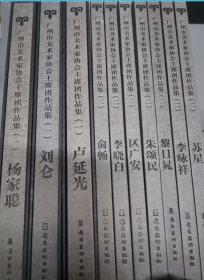 广州市美术家协会主席团作品集(一)
杨家聪
广州市美术家协会主席团作品集(一)
刘仑
广州市美术家协会主席团作品集(一)
卢延光
广州市美术家协会主席团作品集(二)
俞畅
广州市美术家协会主席团作品集(二)
李晓白
广州市美术家协会主席团作品集(二)
区广安
广州市美术家协会主席团作品集(二)
朱颂民
广州市美术家协会主席团作品集(二)
黎日晃
广州市美术家协会主席团作品集(二)
李咏祥
苏星